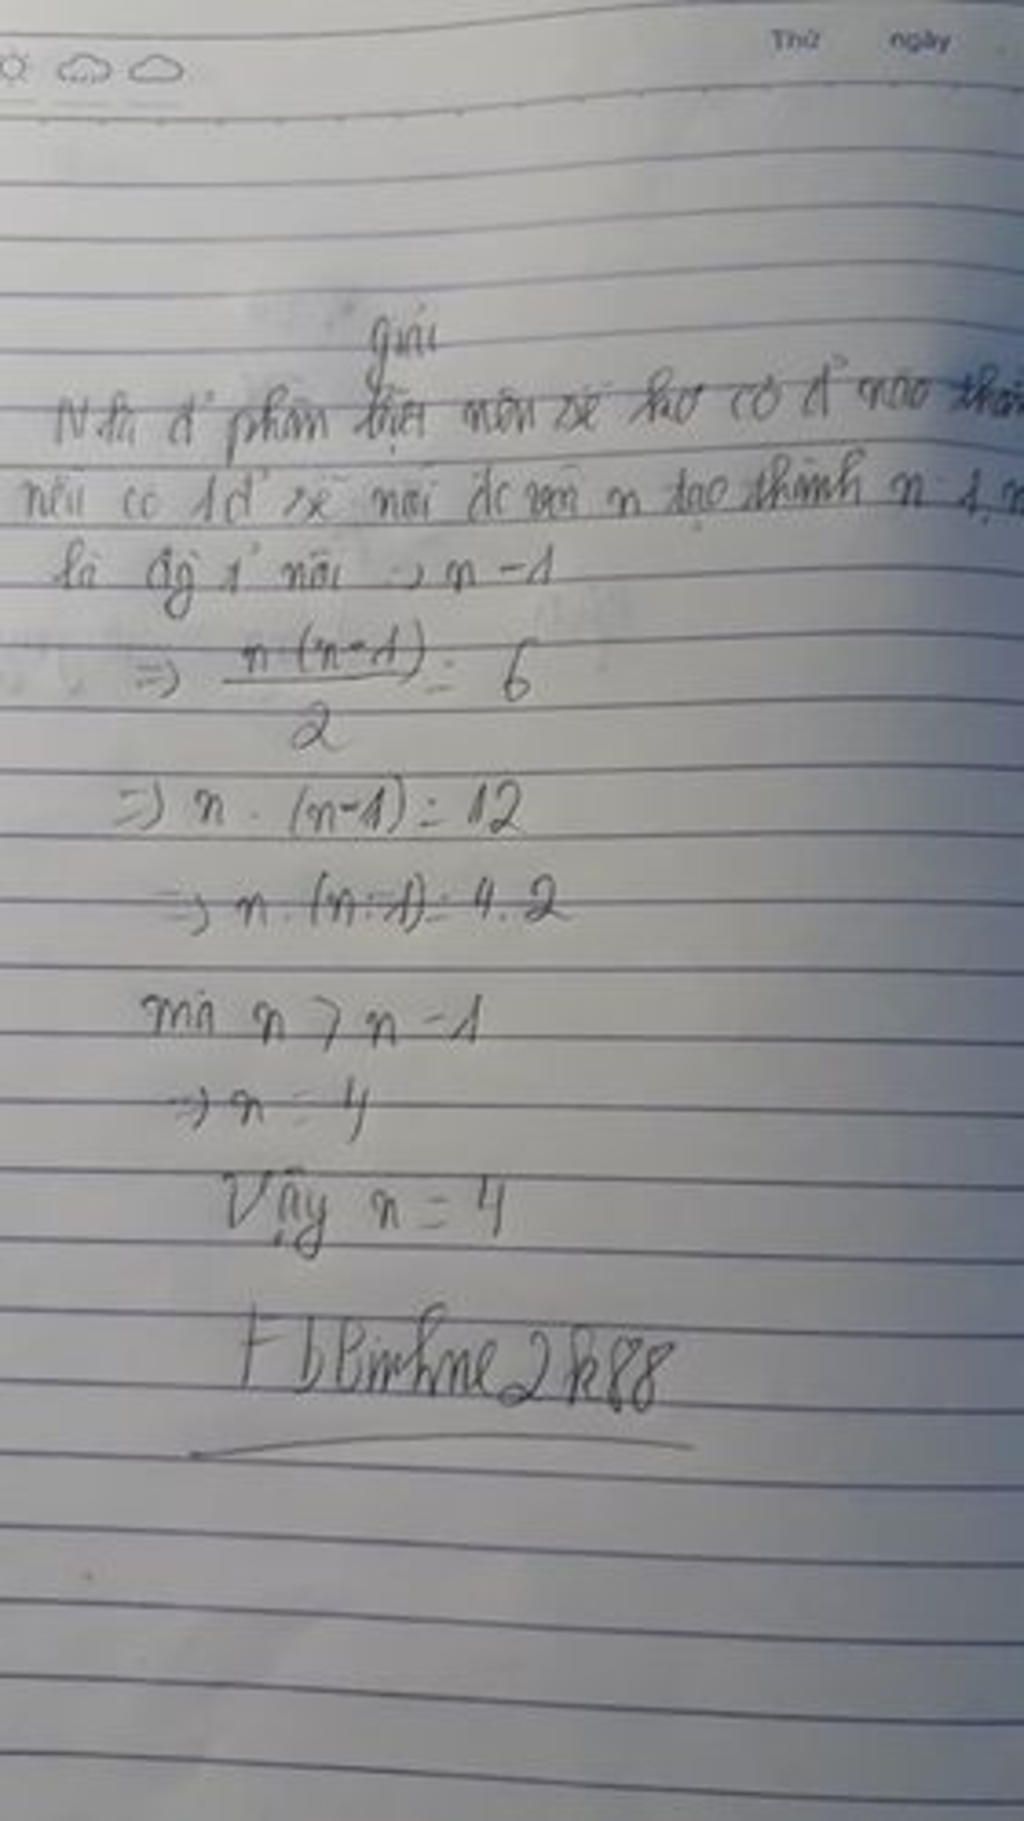 Thứ ngày
giải
đ' phân biệt nên sẽ ko có đ' nào
nếu có 1đ' sẽ nối đc với n tạo thành n-1
là nối → n-1
=> n.(n-1)/2 = 6
=> n.(n-1) = 12
=> n.(n-1) = 4.2
mà n > n-1
=> n = 4
Vậy n = 4
2k88